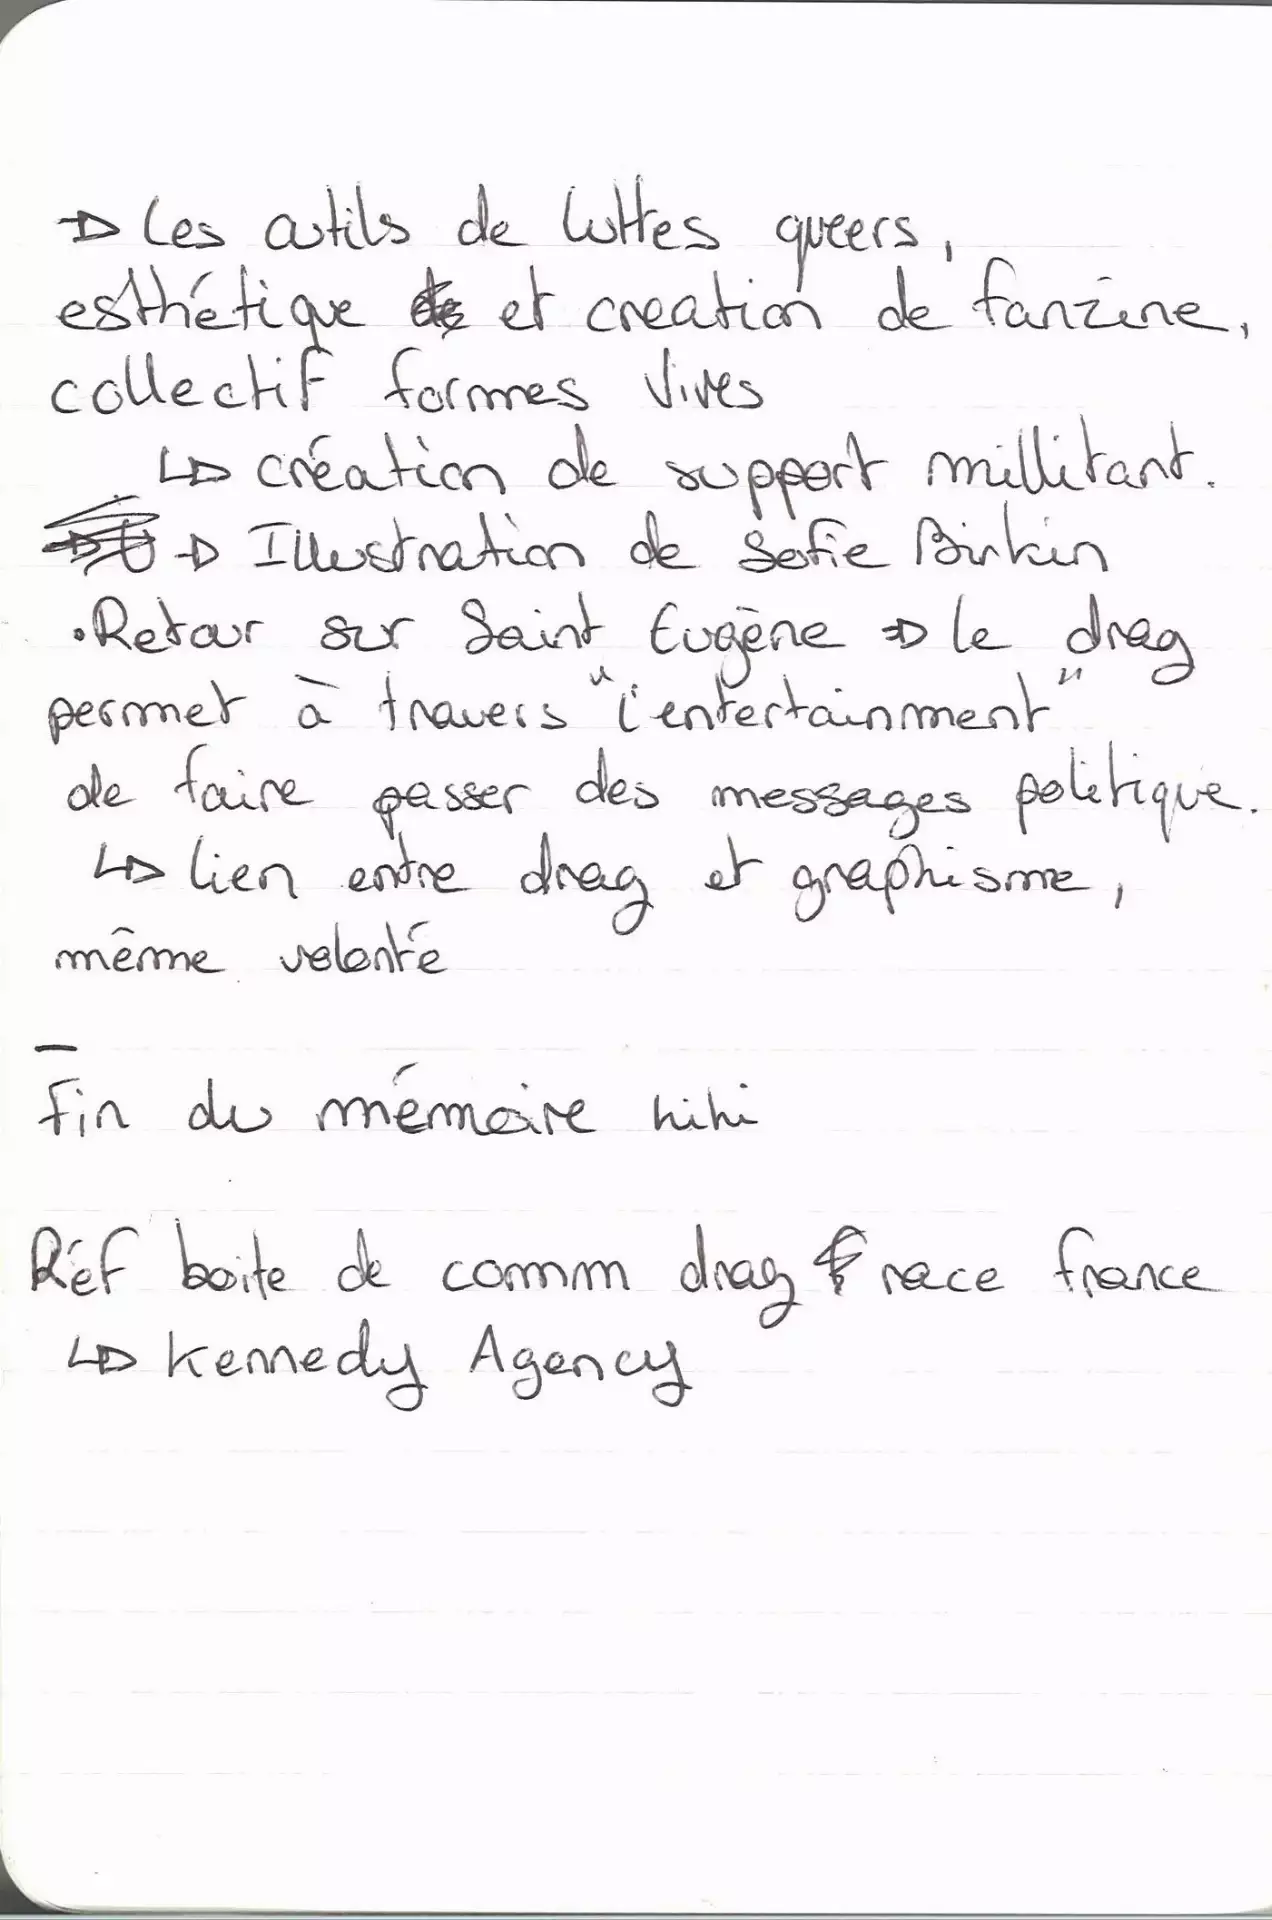 → Les outils de luttes queers,
esthétique et creation de fanzine,
collectif formes Vives
↳ création de support millitant.
→ Illustration de Sofie Birkin
• Retour sur Saint Eugène → le drag
permet à travers "l'entertainment"
de faire passer des messages politique.
↳ lien entre drag et graphisme,
même volonté
—
Fin du mémoire hihi
Réf boite de comm drag race france
↳ Kennedy Agency